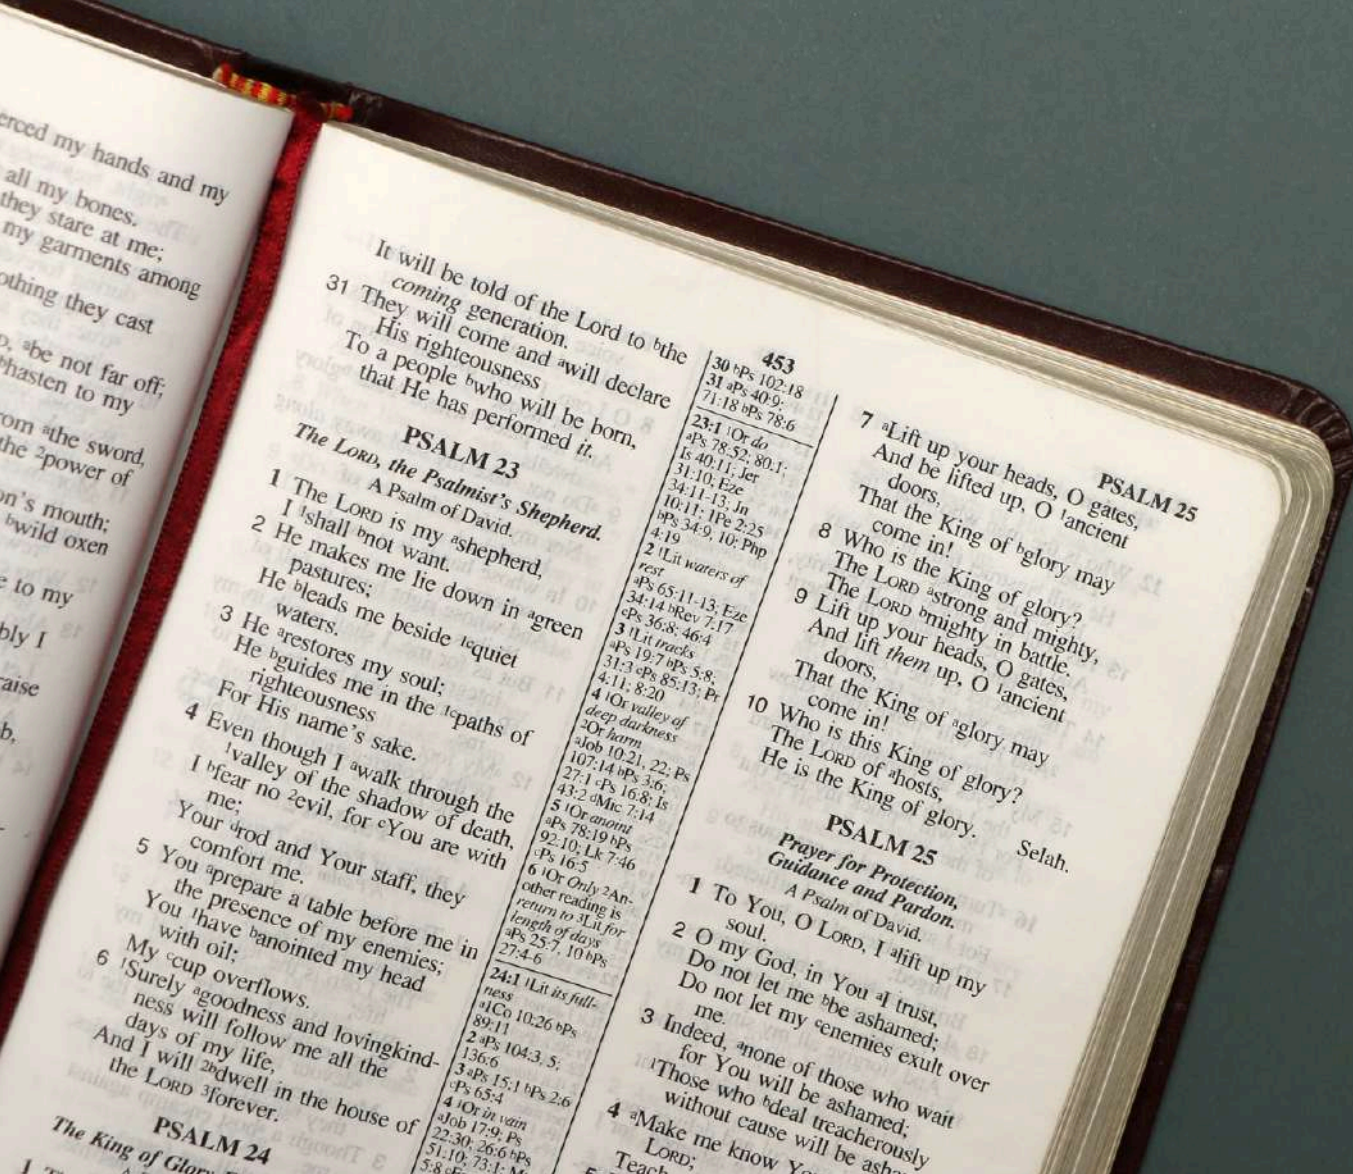 erced my hands and my
all my bones.
they stare at me;
my garments among
othing they cast
ᵃbe not far off;
ᵇhasten to my
rom ᵃthe sword,
the ²power of
on's mouth;
ᵇwild oxen
to my
bly I
raise
b,
453
PSALM 25
It will be told of the Lord to ᵇthe
coming generation.
31 They will come and ᵃwill declare
His righteousness
To a people ᵇwho will be born,
that He has performed it.
PSALM 23
The LORD, the Psalmist's Shepherd.
A Psalm of David.
1 The LORD is my ᵃshepherd,
I ¹shall ᵇnot want.
2 He makes me lie down in ᵃgreen
pastures;
He ᵇleads me beside ¹ᶜquiet
waters.
3 He ᵃrestores my soul;
He ᵇguides me in the ¹ᶜpaths of
righteousness
For His name's sake.
4 Even though I ᵃwalk through the
¹valley of the shadow of death,
I ᵇfear no ²evil, for ᶜYou are with
me;
Your ᵈrod and Your staff, they
comfort me.
5 You ᵃprepare a table before me in
the presence of my enemies;
You ¹have ᵇanointed my head
with oil;
My ᶜcup overflows.
6 ¹Surely ᵃgoodness and lovingkind-
ness will follow me all the
days of my life,
And I will ²ᵇdwell in the house of
the LORD ³forever.
PSALM 24
The King of Glory
30 ᵇPs 102:18
31 ᵃPs 40:9;
71:18 ᵇPs 78:6
23:1 ¹Or do
ᵃPs 78:52; 80:1;
Is 40:11; Jer
31:10; Eze
34:11-13; Jn
10:11; 1Pe 2:25
ᵇPs 34:9, 10; Php
4:19
2 ¹Lit waters of
rest
ᵃPs 65:11-13; Eze
34:14 ᵇRev 7:17
ᶜPs 36:8; 46:4
3 ¹Lit tracks
ᵃPs 19:7 ᵇPs 5:8;
31:3 ᶜPs 85:13; Pr
4:11; 8:20
4 ¹Or valley of
deep darkness
²Or harm
ᵃJob 10:21, 22; Ps
107:14 ᵇPs 3:6;
27:1 ᶜPs 16:8; Is
43:2 ᵈMic 7:14
5 ¹Or anoint
ᵃPs 78:19 ᵇPs
92:10; Lk 7:46
ᶜPs 16:5
6 ¹Or Only ²An-
other reading is
return to ³Lit for
length of days
ᵃPs 25:7, 10 ᵇPs
27:4-6
24:1 ¹Lit its full-
ness
ᵃ1Co 10:26 ᵇPs
89:11
2 ᵃPs 104:3, 5;
136:6
3 ᵃPs 15:1 ᵇPs 2:6
ᶜPs 65:4
4 ¹Or in vain
ᵃJob 17:9; Ps
22:30; 26:6 ᵇPs
51:10; 73:1;
7 ᵃLift up your heads, O gates,
And be lifted up, O ¹ancient
doors,
That the King of ᵇglory may
come in!
8 Who is the King of glory?
The LORD ᵃstrong and mighty,
The LORD ᵇmighty in battle.
9 Lift up your heads, O gates,
And lift them up, O ¹ancient
doors,
That the King of ᵃglory may
come in!
10 Who is this King of glory?
The LORD of ᵃhosts,
He is the King of glory. Selah.
PSALM 25
Prayer for Protection,
Guidance and Pardon.
A Psalm of David.
1 To You, O LORD, I ᵃlift up my
soul.
2 O my God, in You ᵃI trust,
Do not let me ᵇbe ashamed;
Do not let my ᶜenemies exult over
me.
3 Indeed, ᵃnone of those who wait
for You will be ashamed;
¹Those who ᵇdeal treacherously
without cause will be
4 ᵃMake me know
LORD;
Teach